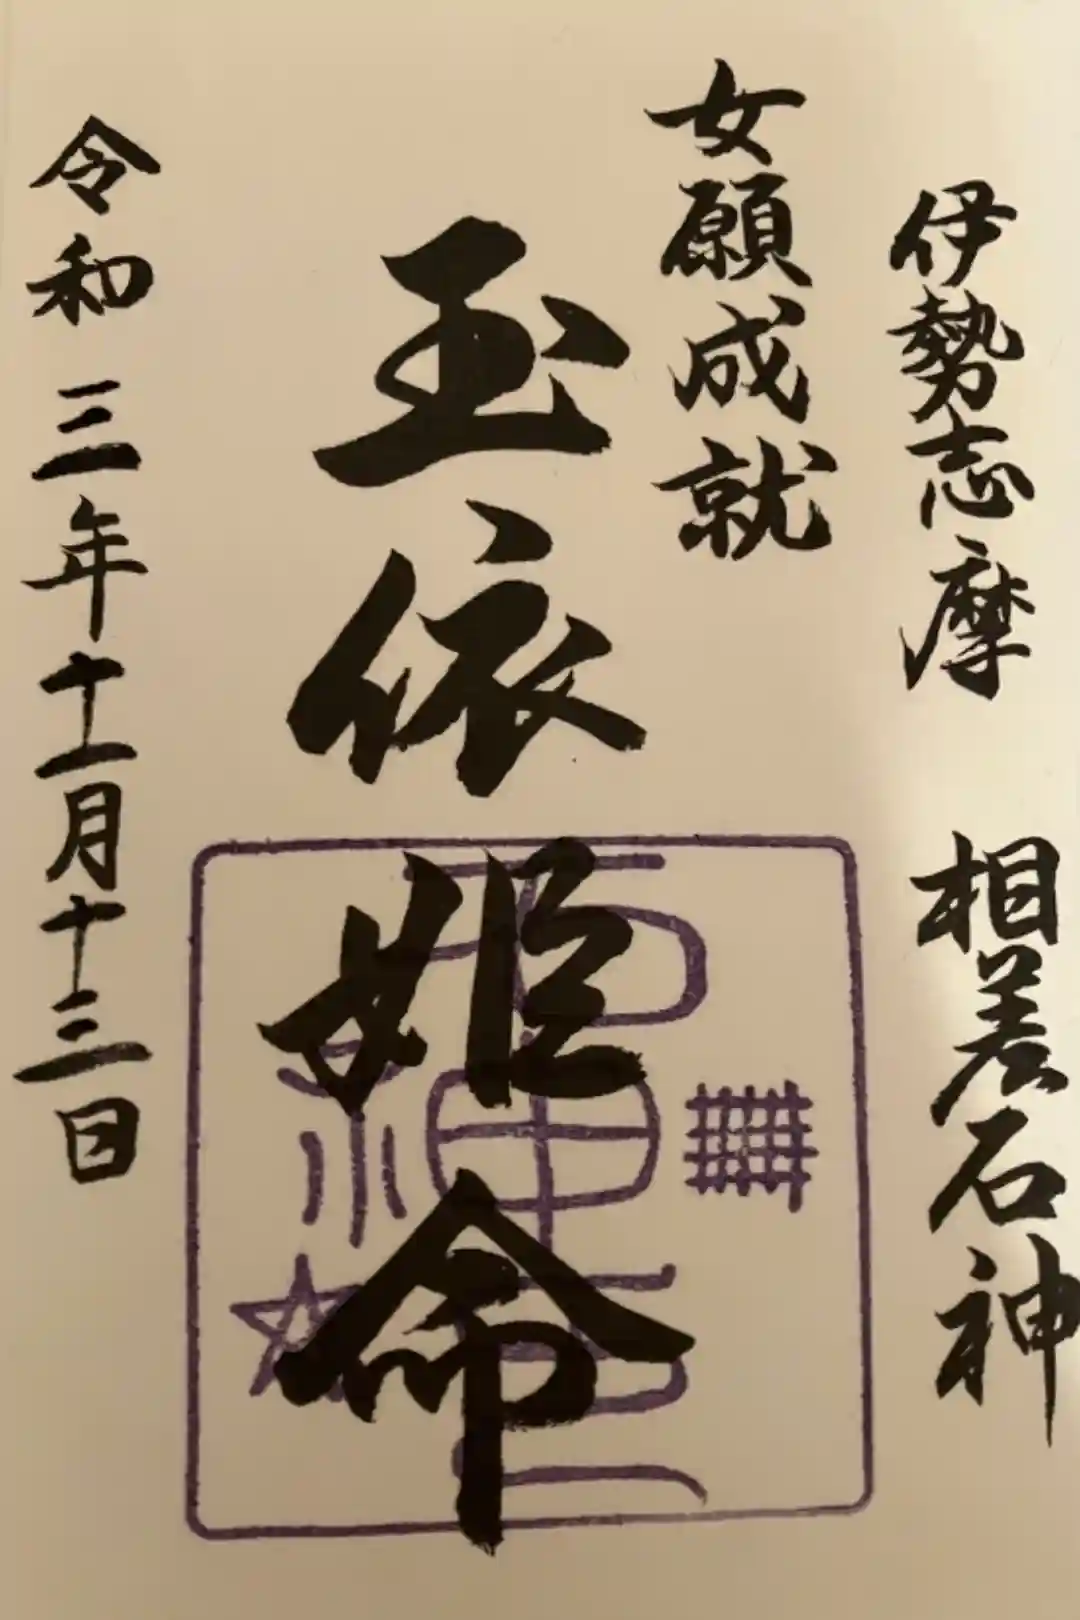 伊勢志摩 相差石神
女願成就
玉依姫命
石神
令和三年十一月十三日